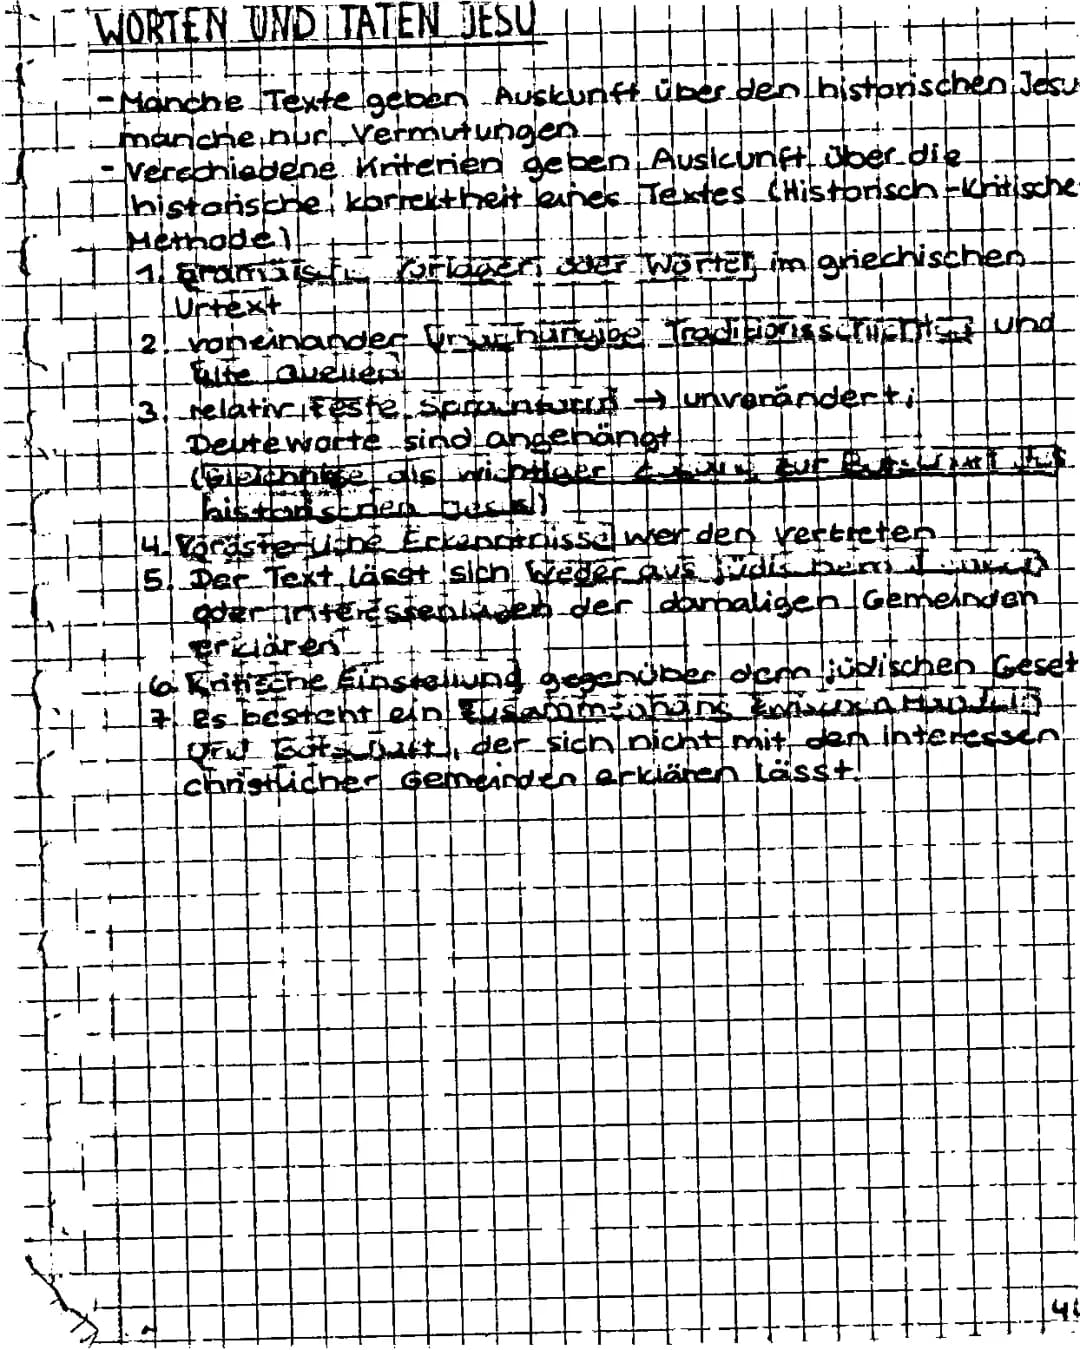 WORTEN UND TATEN JESU
- Manche Texte geben Auskunft über den historischen Jesu
manche nur Vermutungen
- Verschiedene Kriterien geben Auskunft über die
historische korrektheit eines Textes (Historisch-Kritische
Methode)
1. aramäische Vorlagen oder Wörter im griechischen
Urtext
2. voneinander unabhängige Traditionsschichten und
alte Quellen
3. relativ feste Sprachform → unverändert;
Deuteworte sind angehängt
(Gleichnisse als wichtiger zur des
historischen Jesus)
4. Vorösterliche Erkenntnisse werden vertreten
5. Der Text lässt sich weder aus jüdischem
oder Interessenlagen der damaligen Gemeinden
erklären
6. Kritische Einstellung gegenüber dem jüdischen Geset
7. es besteht ein Zusammenhang zwischen Handeln
und Botschaft, der sich nicht mit den interessen
christlicher Gemeinden erklären lässt.